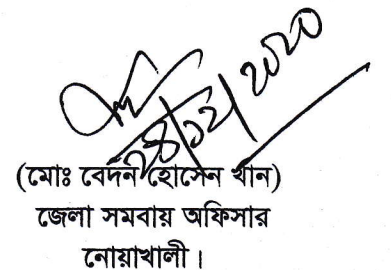 ২৪/১২/২০২০
(মোঃ বেদন হোসেন খান)
জেলা সমবায় অফিসার
নোয়াখালী।